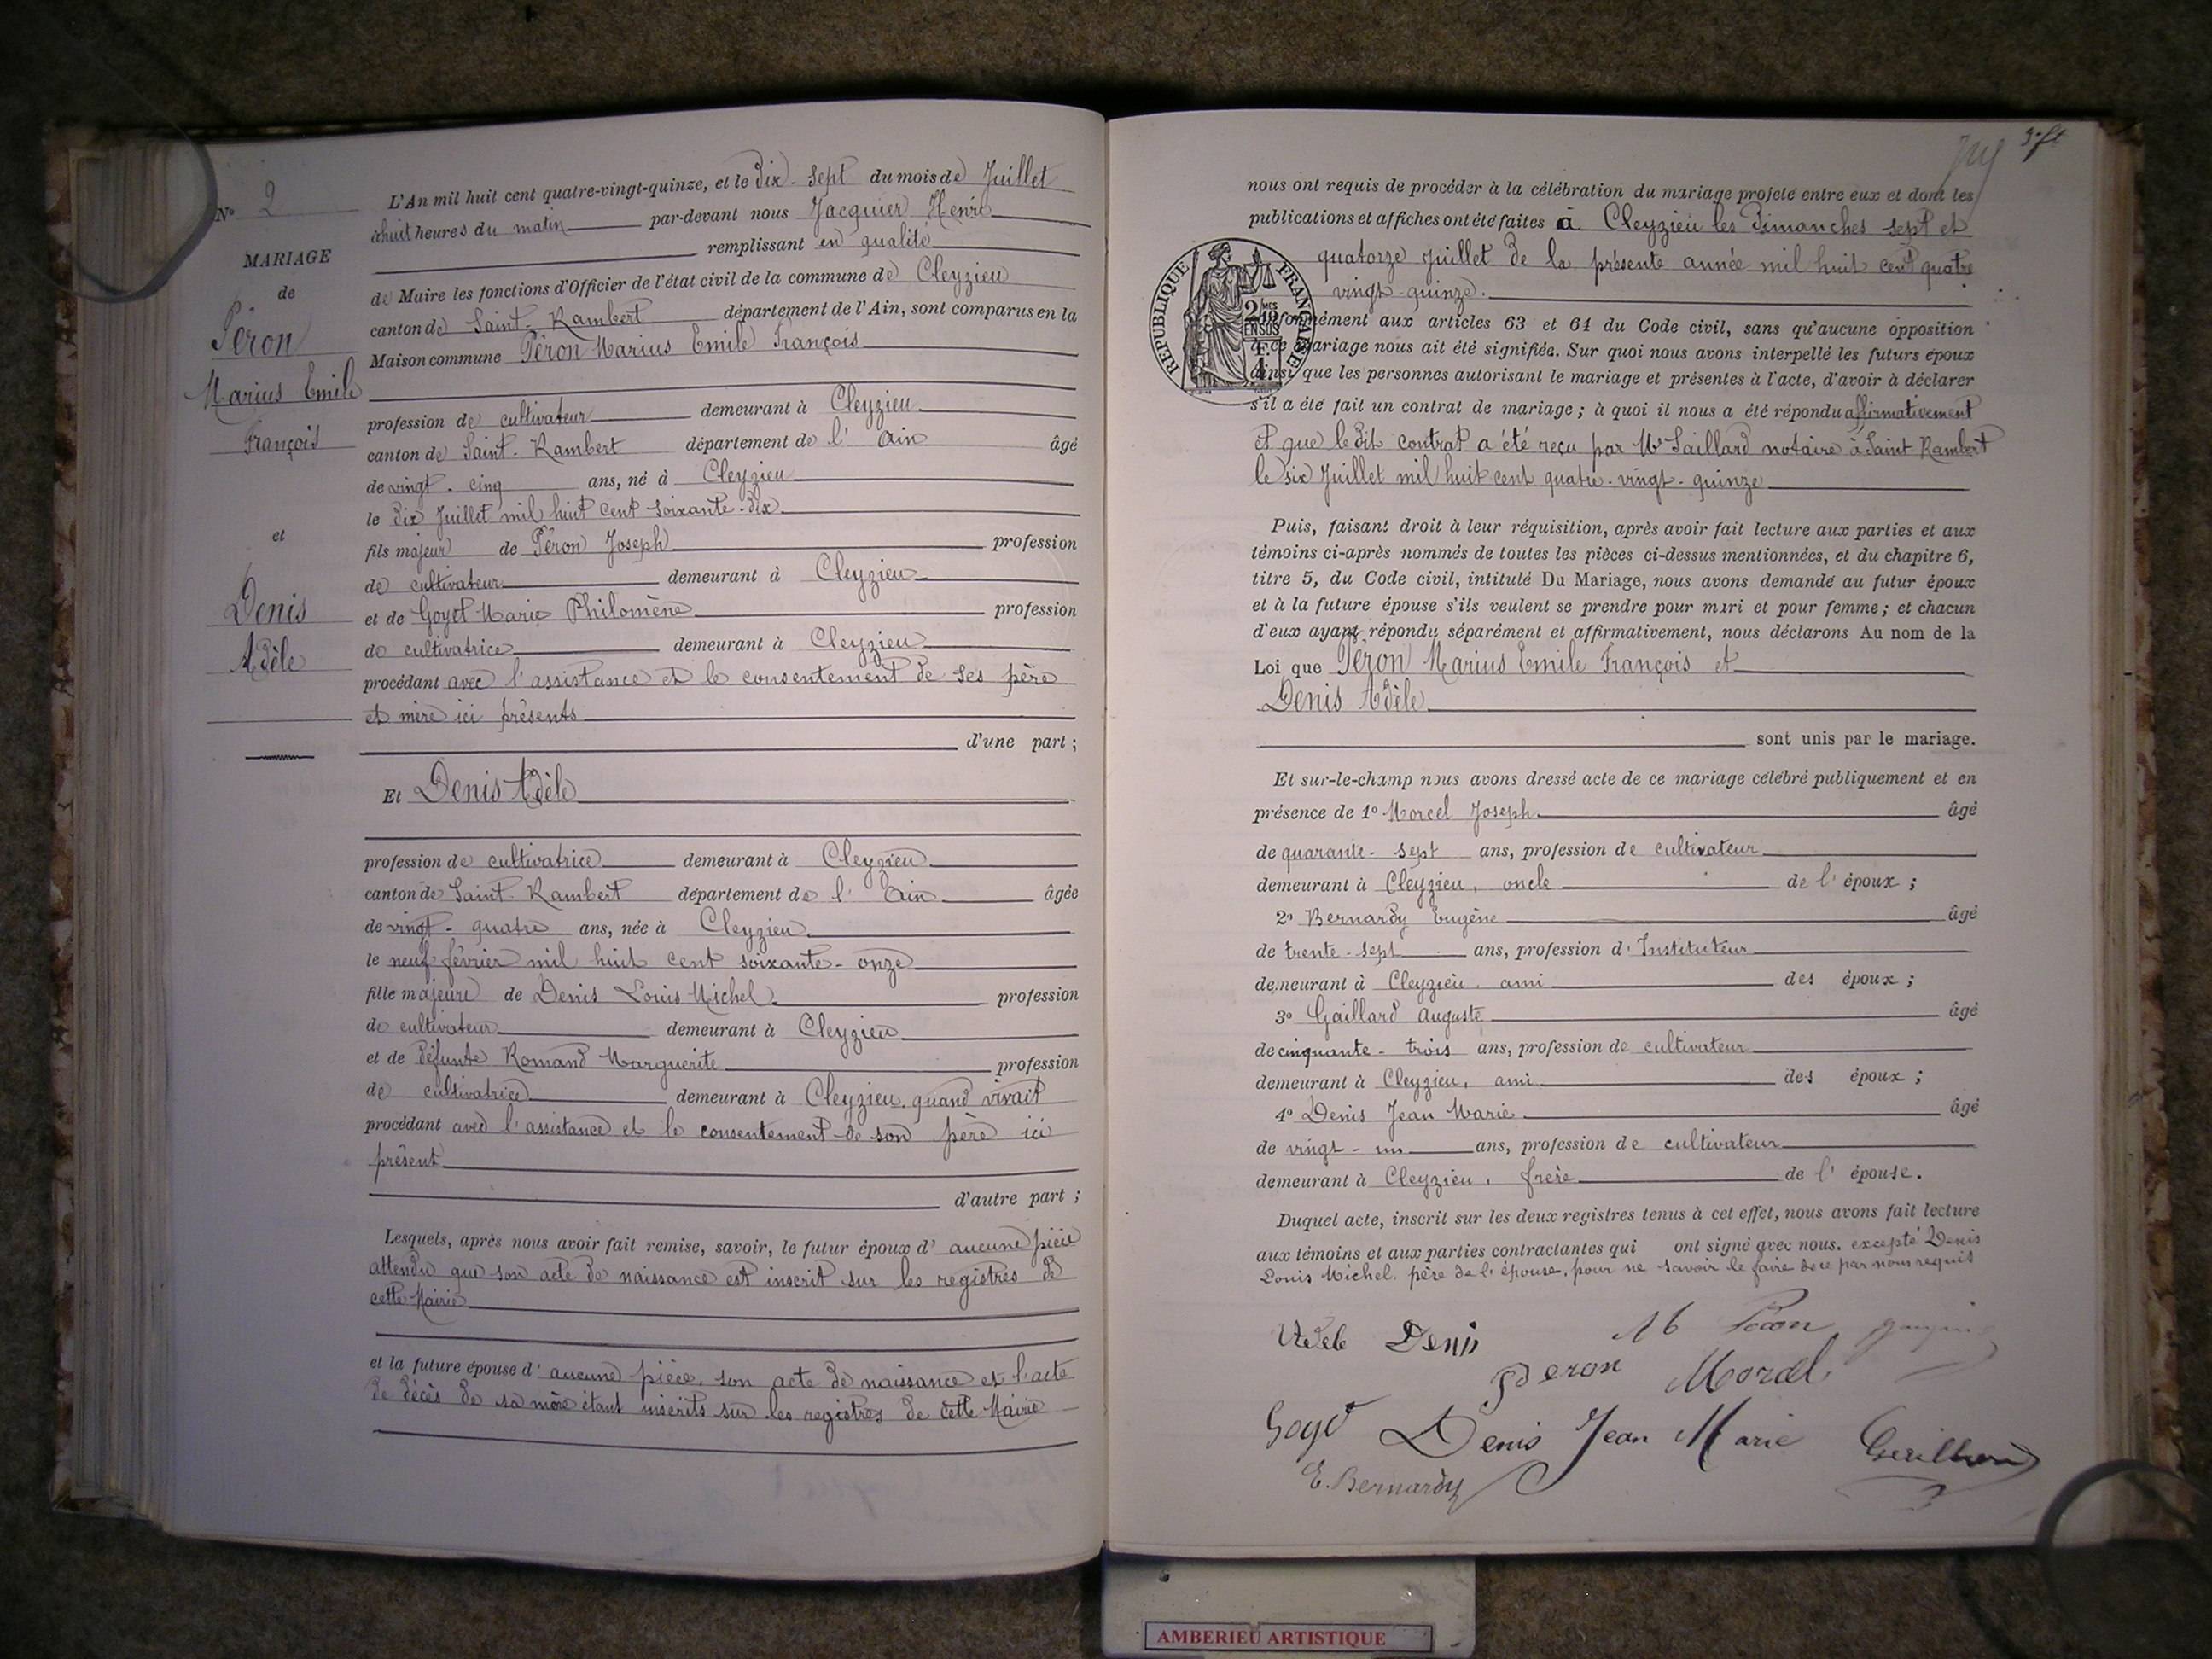 N° 2
MARIAGE
de
Péron
Marius Emile
François
et
Denis
Adèle
L'An mil huit cent quatre-vingt-quinze, et le Dix-sept du mois de Juillet
à huit heures du matin par-devant nous Jacquier Henri
remplissant en qualité
de Maire les fonctions d'Officier de l'état civil de la commune de Cleyzieu
canton de Saint-Rambert département de l'Ain, sont comparus en la
Maison commune Péron Marius Emile François
profession de cultivateur demeurant à Cleyzieu
canton de Saint-Rambert département de l'Ain âgé
de vingt-cinq ans, né à Cleyzieu
le dix Juillet mil huit cent soixante-dix
fils majeur de Péron Joseph profession
de cultivateur demeurant à Cleyzieu
et de Goyet Marie Philomène profession
de cultivatrice demeurant à Cleyzieu
procédant avec l'assistance et le consentement de ses père
et mère ici présents
d'une part ;
Et Denis Adèle
profession de cultivatrice demeurant à Cleyzieu
canton de Saint-Rambert département de l'Ain âgée
de vingt-quatre ans, née à Cleyzieu
le neuf février mil huit cent soixante-onze
fille majeure de Denis Louis Michel profession
de cultivateur demeurant à Cleyzieu
et de défunte Romand Marguerite profession
de cultivatrice demeurant à Cleyzieu quand vivait
procédant avec l'assistance et le consentement de son père ici
présent
d'autre part ;
Lesquels, après nous avoir fait remise, savoir, le futur époux d'aucune pièce
attendu que son acte de naissance est inscrit sur les registres de
cette Mairie
et la future épouse d'aucune pièce, son acte de naissance et l'acte
de décès de sa mère étant inscrits sur les registres de cette Mairie
nous ont requis de procéder à la célébration du mariage projeté entre eux et dont les
publications et affiches ont été faites à Cleyzieu les Dimanches sept et
quatorze Juillet de la présente année mil huit cent quatre
vingt-quinze.
REPUBLIQUE FRANÇAISE
2/10mes EN SUS
conformément aux articles 63 et 64 du Code civil, sans qu'aucune opposition
à ce mariage nous ait été signifiée. Sur quoi nous avons interpellé les futurs époux
ainsi que les personnes autorisant le mariage et présentes à l'acte, d'avoir à déclarer
s'il a été fait un contrat de mariage ; à quoi il nous a été répondu affirmativement
et que le dit contrat a été reçu par Me Saillard notaire à Saint Rambert
le six Juillet mil huit cent quatre-vingt-quinze
Puis, faisant droit à leur réquisition, après avoir fait lecture aux parties et aux
témoins ci-après nommés de toutes les pièces ci-dessus mentionnées, et du chapitre 6,
titre 5, du Code civil, intitulé Du Mariage, nous avons demandé au futur époux
et à la future épouse s'ils veulent se prendre pour mari et pour femme ; et chacun
d'eux ayant répondu séparément et affirmativement, nous déclarons Au nom de la
Loi que Péron Marius Emile François et
Denis Adèle
sont unis par le mariage.
Et sur-le-champ nous avons dressé acte de ce mariage célébré publiquement et en
présence de 1° Morcel Joseph âgé
de quarante-sept ans, profession de cultivateur
demeurant à Cleyzieu, oncle de l'époux ;
2° Bernardy Eugène âgé
de trente-sept ans, profession d'Instituteur
demeurant à Cleyzieu, ami des époux ;
3° Gaillard Auguste âgé
de cinquante-trois ans, profession de cultivateur
demeurant à Cleyzieu, ami des époux ;
4° Denis Jean Marie âgé
de vingt-un ans, profession de cultivateur
demeurant à Cleyzieu, frère de l'épouse.
Duquel acte, inscrit sur les deux registres tenus à cet effet, nous avons fait lecture
aux témoins et aux parties contractantes qui ont signé avec nous. excepté Denis
Louis Michel, père de l'épouse, pour ne savoir le faire de ce par nous requis
Adele Denis Péron
Peron Morcel
Goyet Denis Jean Marie
E. Bernardy
AMBERIEU ARTISTIQUE